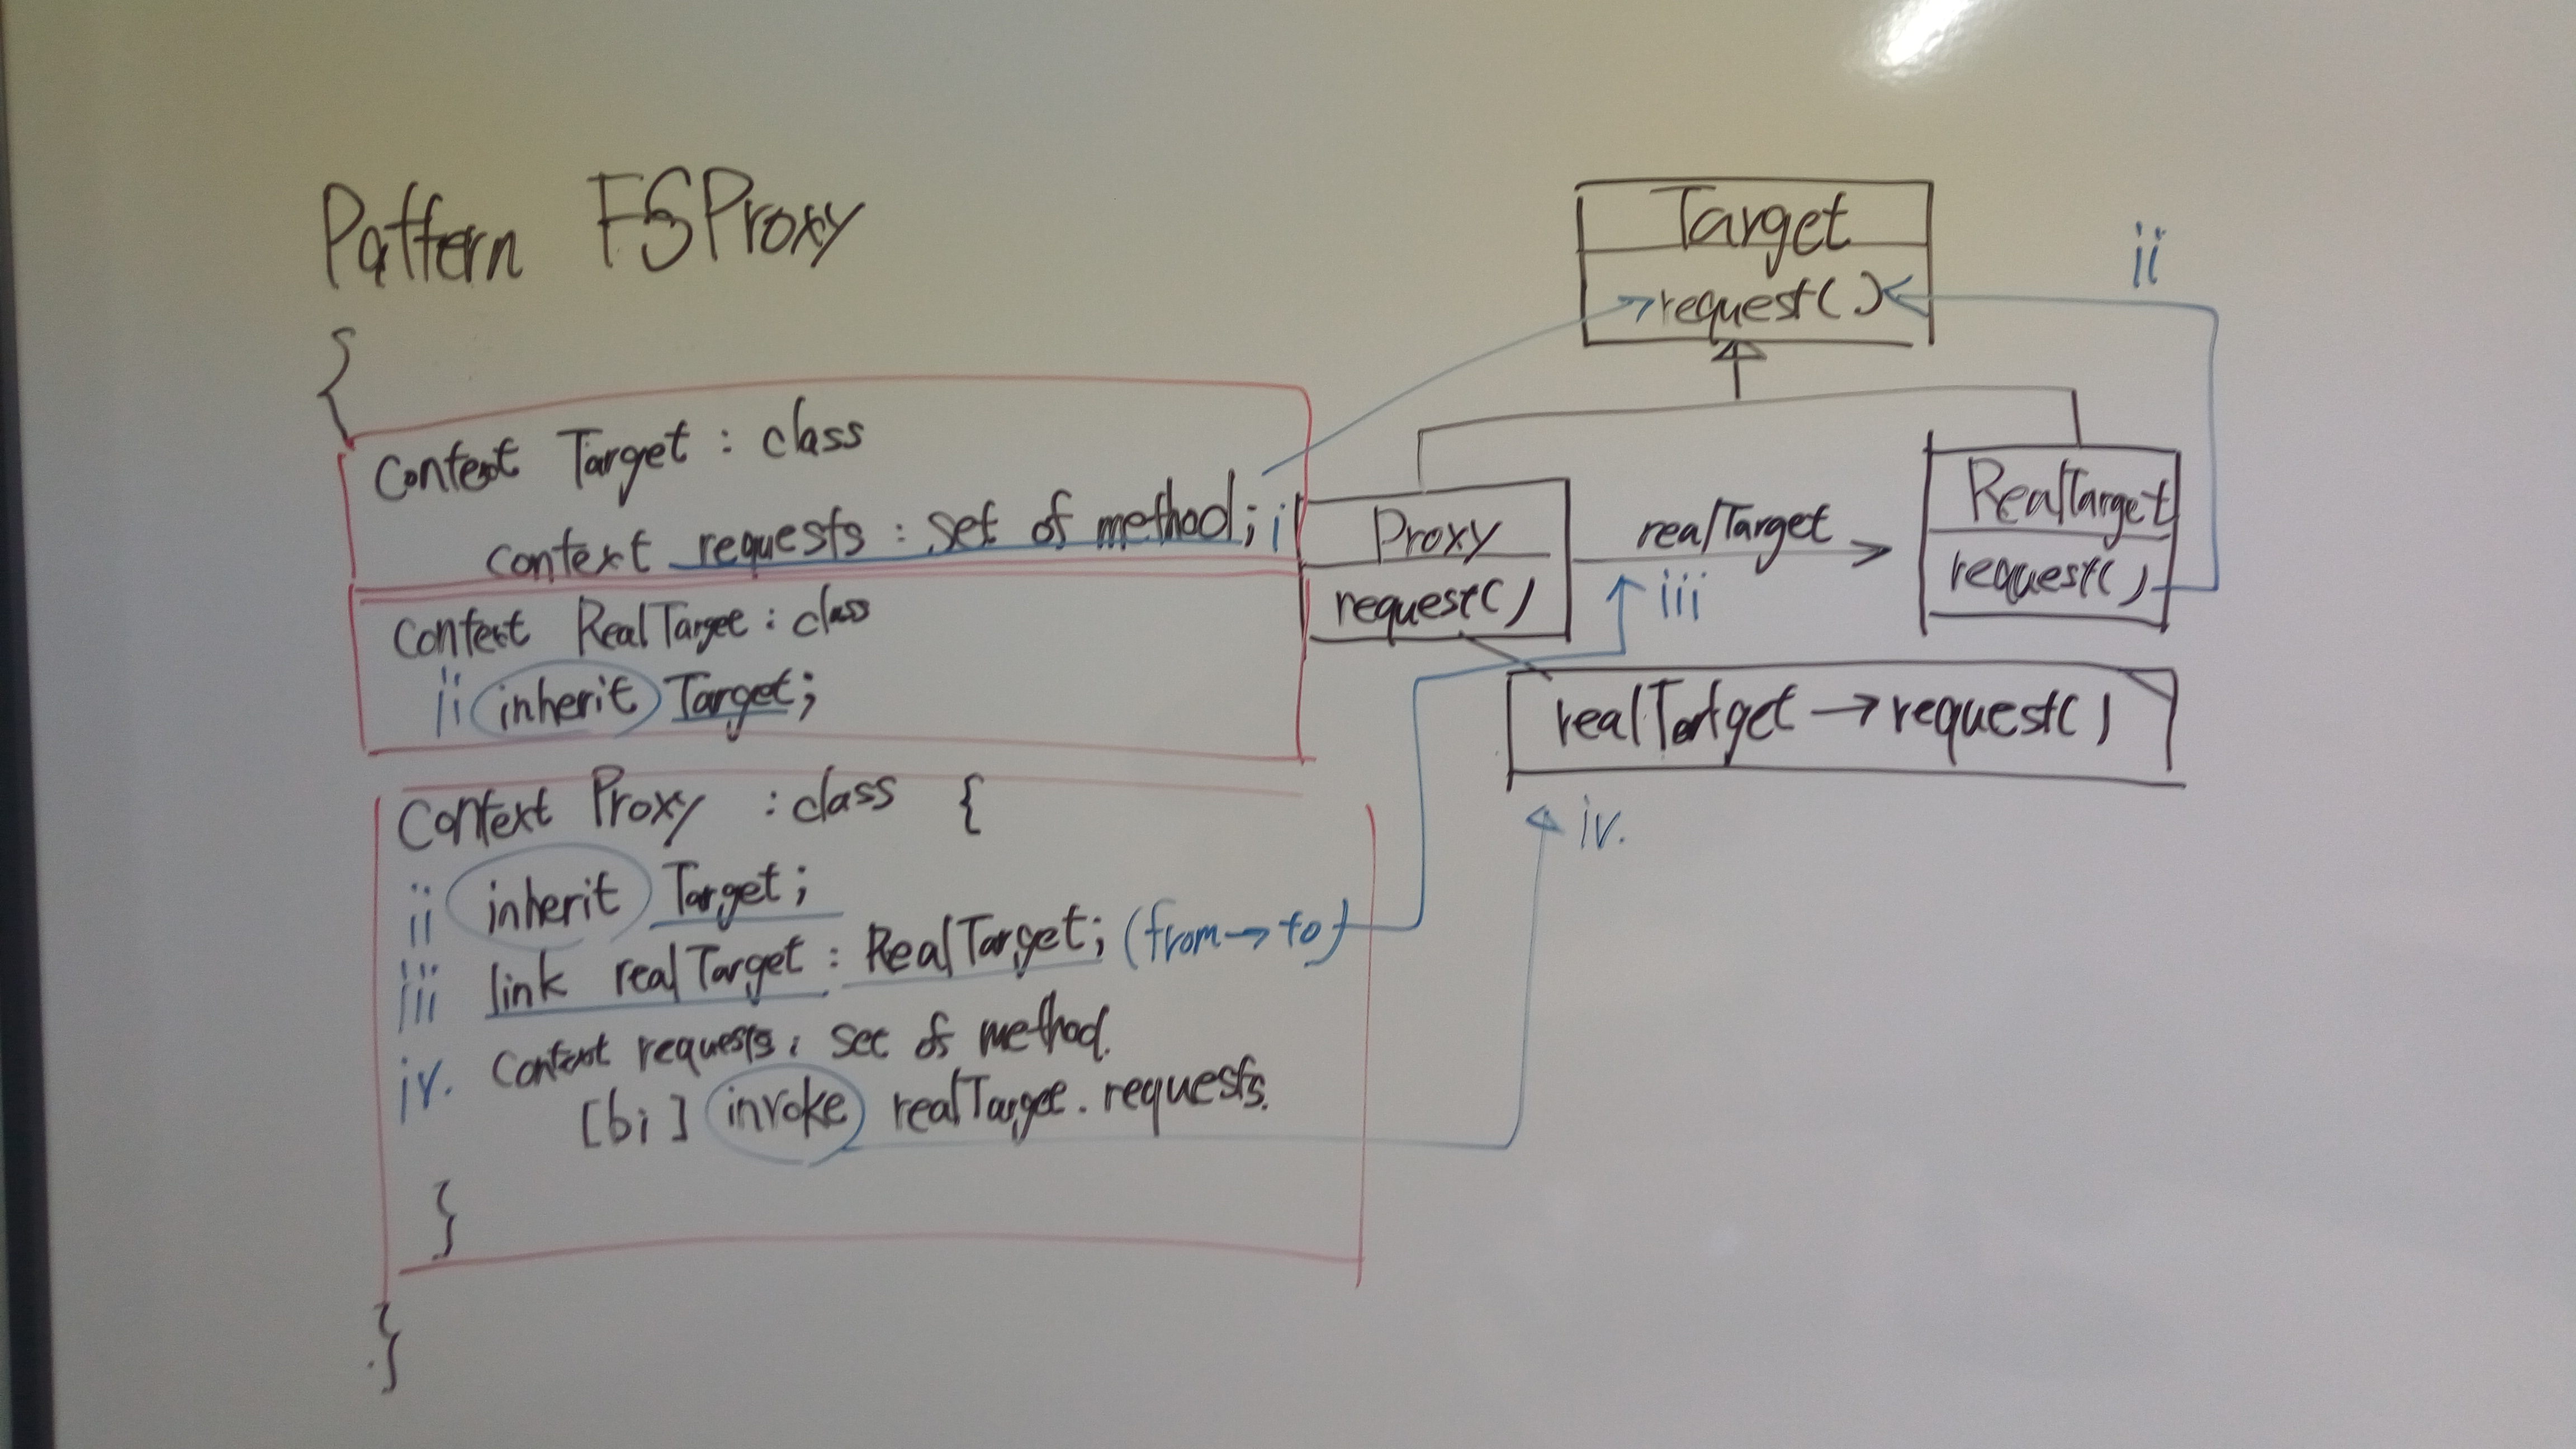 Pattern FSProxy
{
Context Target : class
context requests : set of method; i
Context RealTarget : class
ii inherit Target;
Context Proxy : class {
ii inherit Target;
iii link realTarget : RealTarget; (from→to)
iv. Context requests : set of method.
[bi] invoke realTarget.requests.
}
}
Target
request()
ii
Proxy
request()
realTarget
iii
RealTarget
request()
realTartget → request()
iv.